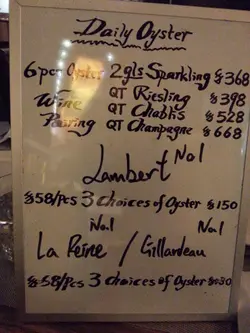 Daily Oyster
6 pcs Oyster 2 gls Sparkling $368
Wine QT Riesling $398
Pairing QT Chablis $528
QT Champagne $668
Lambert No.1
$58/pcs 3 choices of Oyster $150
No.1 No.1
La Reine / Gillardeau
$58/pcs 3 choices of Oyster